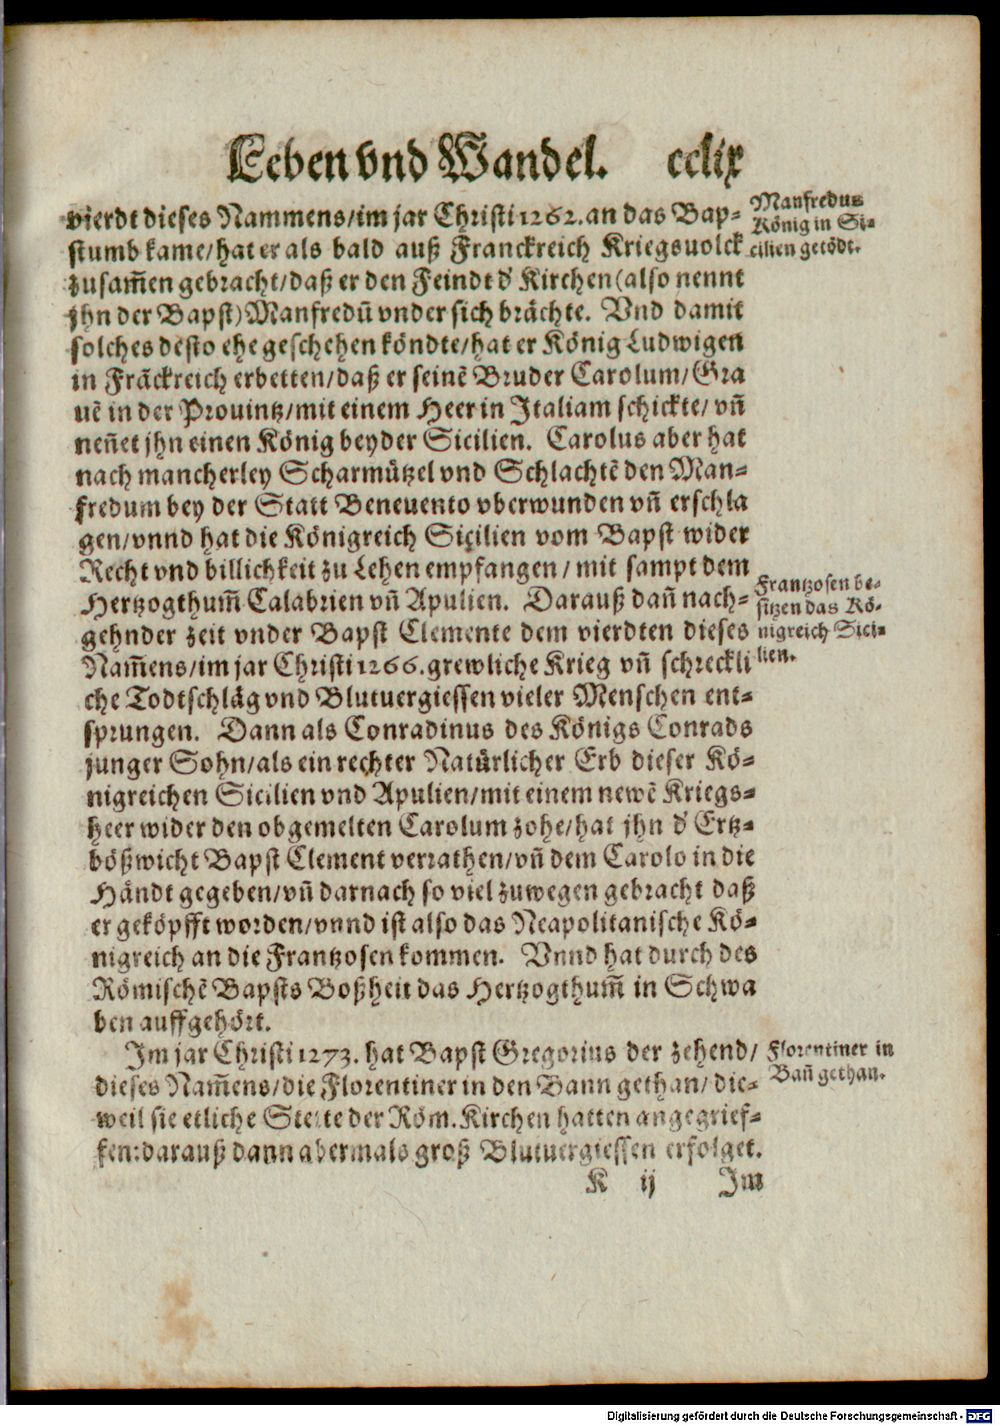 Leben vnd Wandel. cclix
vierdt dieses Nammens/im jar Christi 1262. an das Bap-
stumb kame/hat er als bald auß Franckreich Kriegsuolck
zusam̃en gebracht/daß er den Feindt d' Kirchen (also nennt
jhn der Bapst) Manfredū vnder sich brächte. Vnd damit
solches desto ehe geschehen köndte/hat er König Ludwigen
in Frāckreich erbetten/daß er seinē Bruder Carolum/Gra
uē in der Prouintz/mit einem Heer in Italiam schickte/ vñ
neñet jhn einen König beyder Sicilien. Carolus aber hat
nach mancherley Scharmützel vnd Schlachtē den Man-
fredum bey der Statt Beneuento vberwunden vñ erschla
gen/vnnd hat die Königreich Sicilien vom Bapst wider
Recht vnd billichkeit zu Lehen empfangen/ mit sampt dem
Hertzogthum̃ Calabrien vñ Apulien. Darauß dañ nach-
gehnder zeit vnder Bapst Clemente dem vierdten dieses
Nam̃ens/im jar Christi 1266. grewliche Krieg vñ schreckli
che Todtschläg vnd Blutuergiessen vieler Menschen ent-
sprungen. Dann als Conradinus des Königs Conrads
junger Sohn/als ein rechter Natürlicher Erb dieser Kö-
nigreichen Sicilien vnd Apulien/mit einem newē Kriegs-
heer wider den obgemelten Carolum zohe/hat jhn d' Ertz-
bößwicht Bapst Clement verrathen/vñ dem Carolo in die
Händt gegeben/vñ darnach so viel zuwegen gebracht daß
er geköpfft worden/vnnd ist also das Neapolitanische Kö-
nigreich an die Frantzosen kommen. Vnnd hat durch des
Römischē Bapsts Boßheit das Hertzogthum̃ in Schwa
ben auffgehört.
Im jar Christi 1273. hat Bapst Gregorius der zehend/
dieses Nam̃ens/die Florentiner in den Bann gethan/ die-
weil sie etliche Stette der Röm. Kirchen hatten angegrief-
fen:darauß dann abermals groß Blutuergiessen erfolget.
K ij Im
Manfredus
König in Si-
cilien getödt.
Frantzosen be-
sitzen das Kö-
nigreich Sici-
lien.
Florentiner in
Bañ gethan.
Digitalisierung gefördert durch die Deutsche Forschungsgemeinschaft - DFG